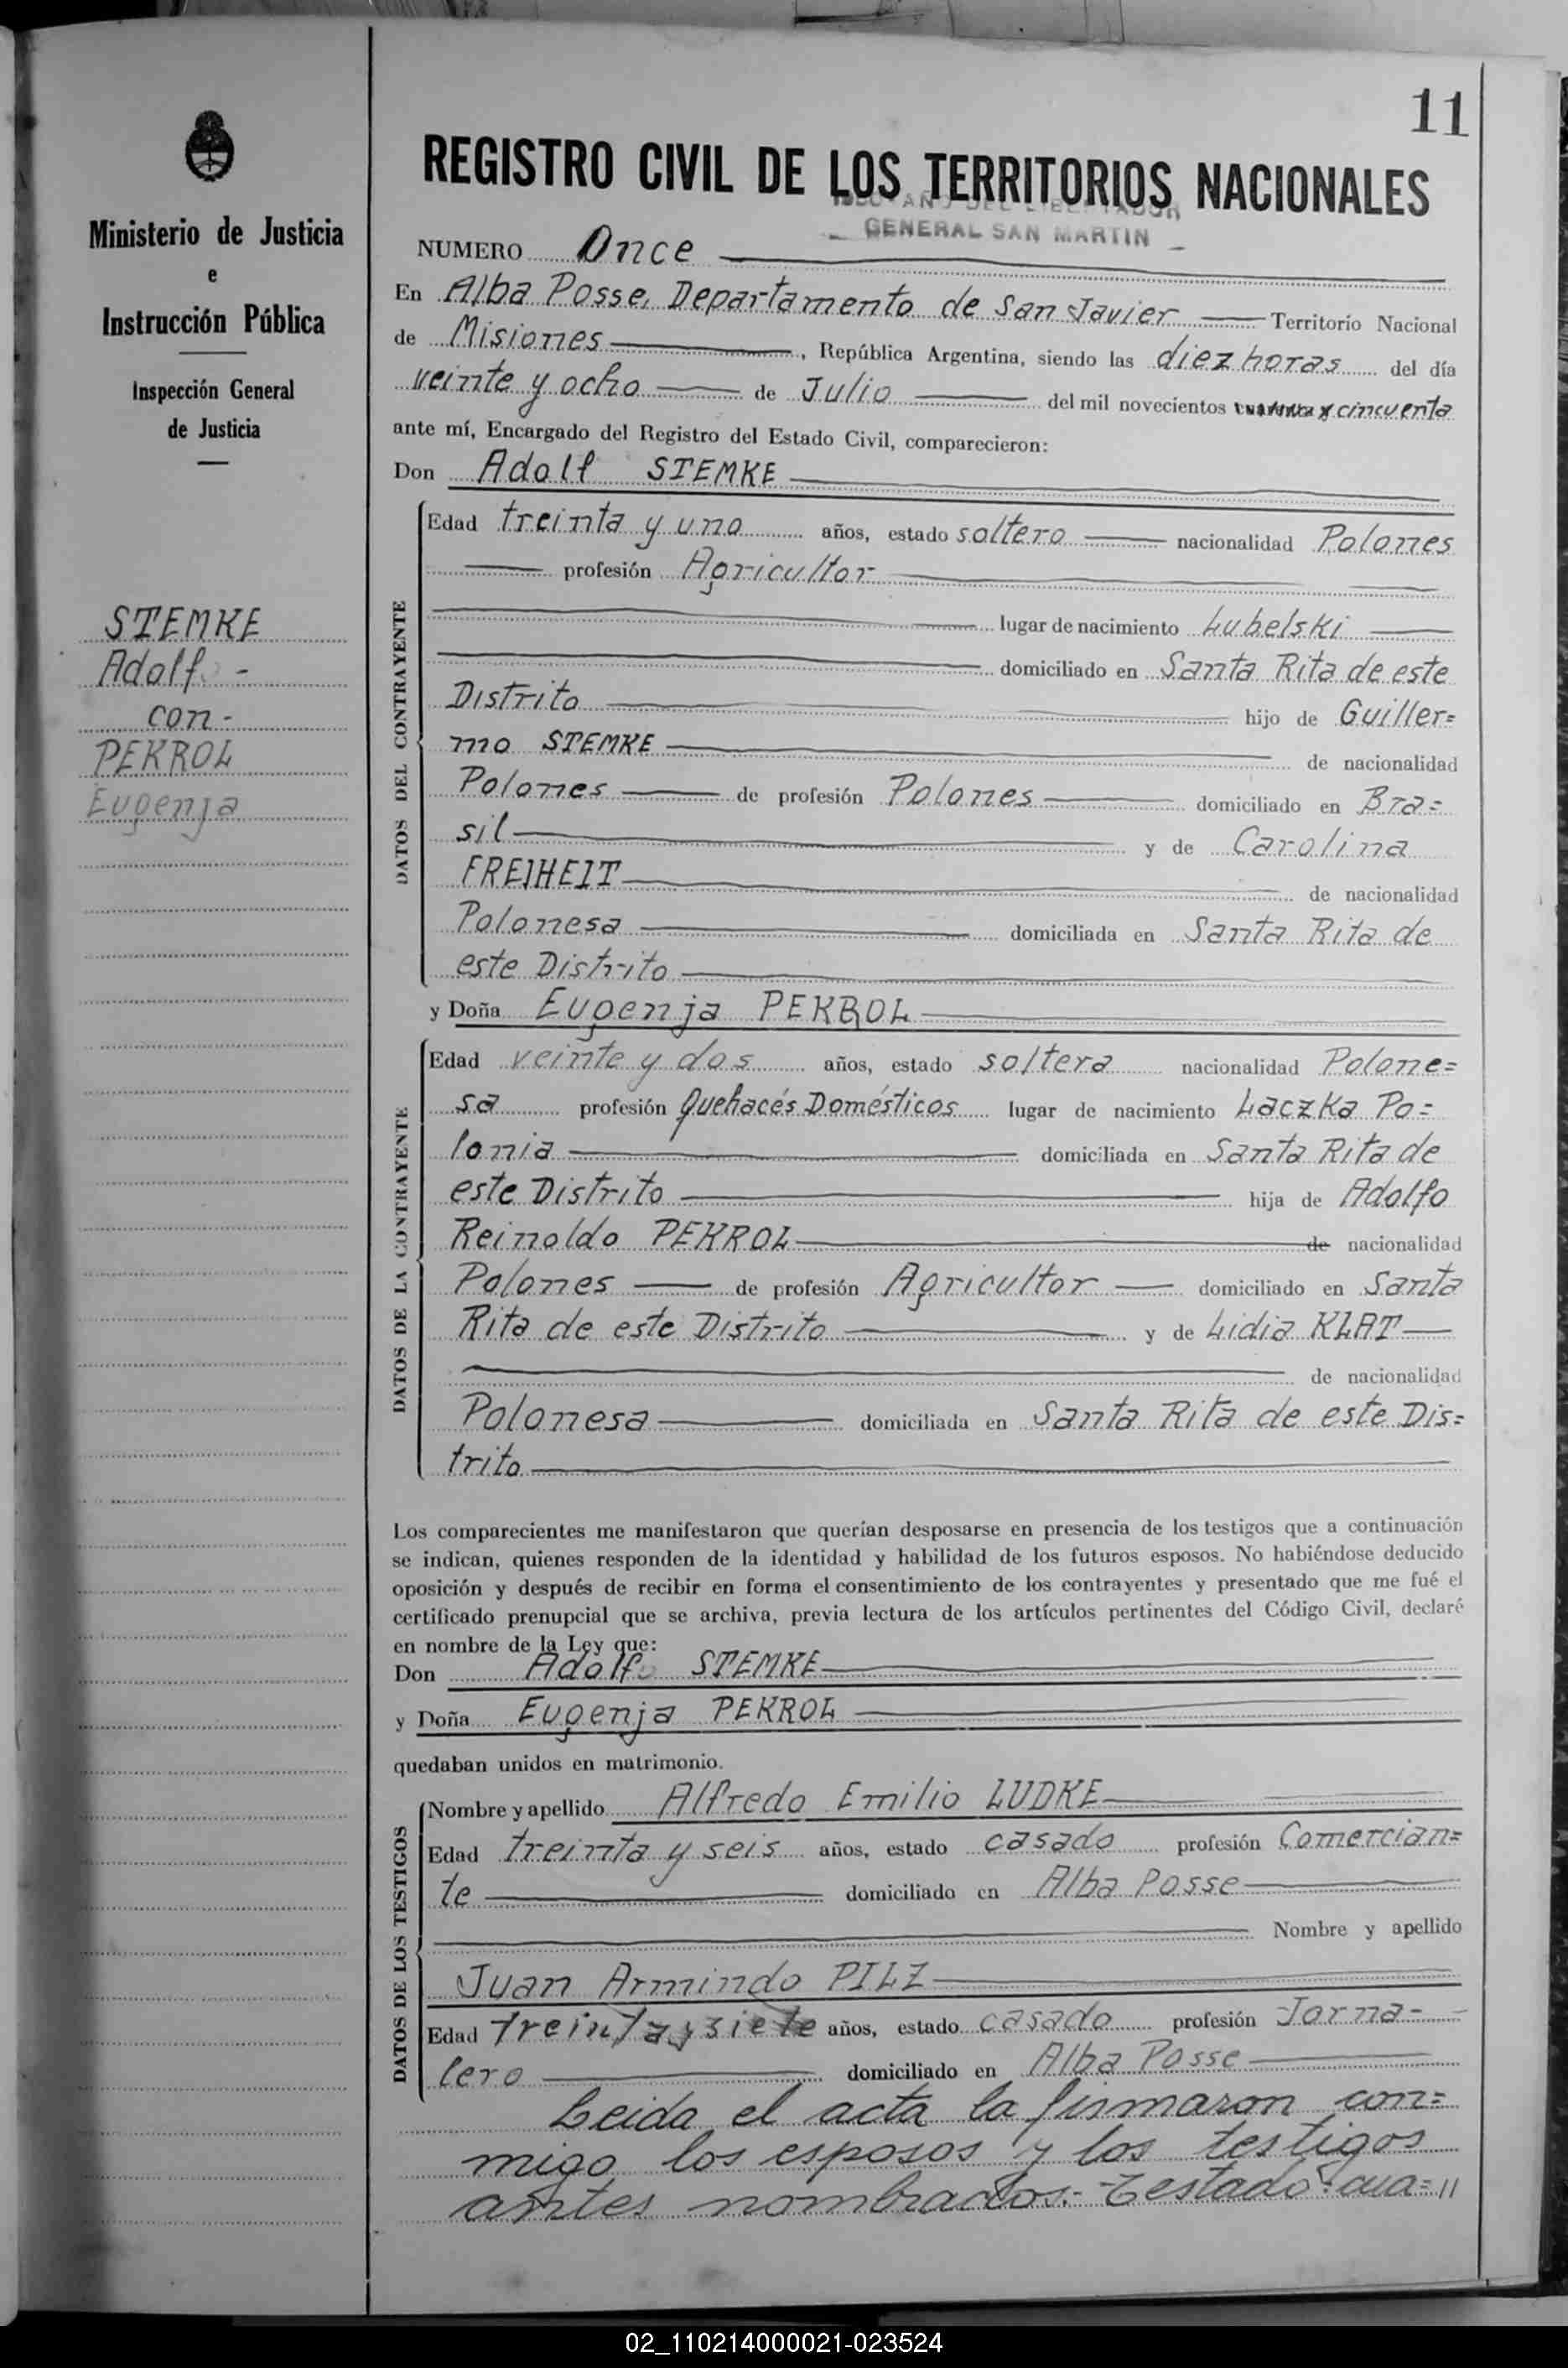 11
REGISTRO CIVIL DE LOS TERRITORIOS NACIONALES
1950 AÑO DEL LIBERTADOR
GENERAL SAN MARTIN
Ministerio de Justicia
e
Instrucción Pública
Inspección General
de Justicia
STEMKE
Adolf -
con -
PEKROL
Eugenja
NUMERO Once
En Alba Posse, Departamento de San Javier Territorio Nacional
de Misiones, República Argentina, siendo las diez horas del día
veinte y ocho de Julio del mil novecientos cuarenta y cincuenta
ante mí, Encargado del Registro del Estado Civil, comparecieron:
Don Adolf STEMKE
DATOS DEL CONTRAYENTE
Edad treinta y uno años, estado soltero nacionalidad Polones
profesión Agricultor
lugar de nacimiento Lubelski
domiciliado en Santa Rita de este
Distrito hijo de Guiller=
mo STEMKE de nacionalidad
Polones de profesión Polones domiciliado en Bra=
sil y de Carolina
FREIHEIT de nacionalidad
Polonesa domiciliada en Santa Rita de
este Distrito
y Doña Eugenja PEKROL
DATOS DE LA CONTRAYENTE
Edad veinte y dos años, estado soltera nacionalidad Polone=
sa profesión Quehacés Domésticos lugar de nacimiento Laczka Po=
lonia domiciliada en Santa Rita de
este Distrito hija de Adolfo
Reinoldo PEKROL de nacionalidad
Polones de profesión Agricultor domiciliado en Santa
Rita de este Distrito y de Lidia KLAT
de nacionalidad
Polonesa domiciliada en Santa Rita de este Dis=
trito
Los comparecientes me manifestaron que querían desposarse en presencia de los testigos que a continuación
se indican, quienes responden de la identidad y habilidad de los futuros esposos. No habiéndose deducido
oposición y después de recibir en forma el consentimiento de los contrayentes y presentado que me fué el
certificado prenupcial que se archiva, previa lectura de los artículos pertinentes del Código Civil, declaré
en nombre de la Ley que:
Don Adolf STEMKE
y Doña Eugenja PEKROL
quedaban unidos en matrimonio.
DATOS DE LOS TESTIGOS
Nombre y apellido Alfredo Emilio LUDKE
Edad treinta y seis años, estado casado profesión Comercian=
te domiciliado en Alba Posse
Nombre y apellido
Juan Armindo PILZ
Edad treinta y siete años, estado casado profesión Jorna-
lero domiciliado en Alba Posse
Leida el acta la firmaron con=
migo los esposos y los testigos
antes nombrados.- Testado: cua= //
02_110214000021-023524